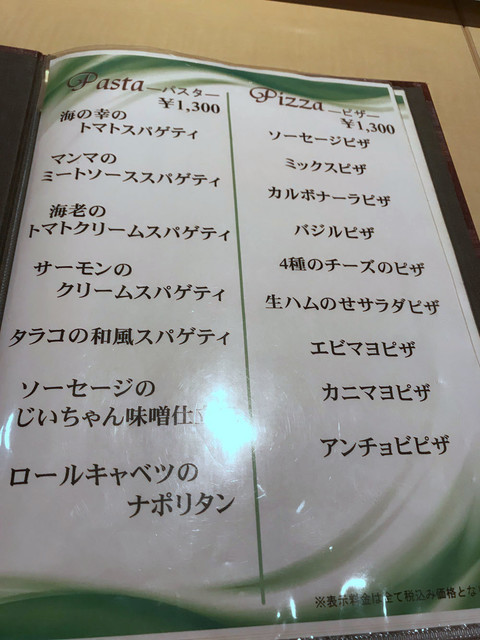 Pasta ―パスタ―
¥1,300
海の幸の
トマトスパゲティ
マンマの
ミートソーススパゲティ
海老の
トマトクリームスパゲティ
サーモンの
クリームスパゲティ
タラコの和風スパゲティ
ソーセージの
じいちゃん味噌仕
ロールキャベツの
ナポリタン
Pizza ―ピザ―
¥1,300
ソーセージピザ
ミックスピザ
カルボナーラピザ
バジルピザ
4種のチーズのピザ
生ハムのせサラダピザ
エビマヨピザ
カニマヨピザ
アンチョビピザ
※表示料金は全て税込み価格とな